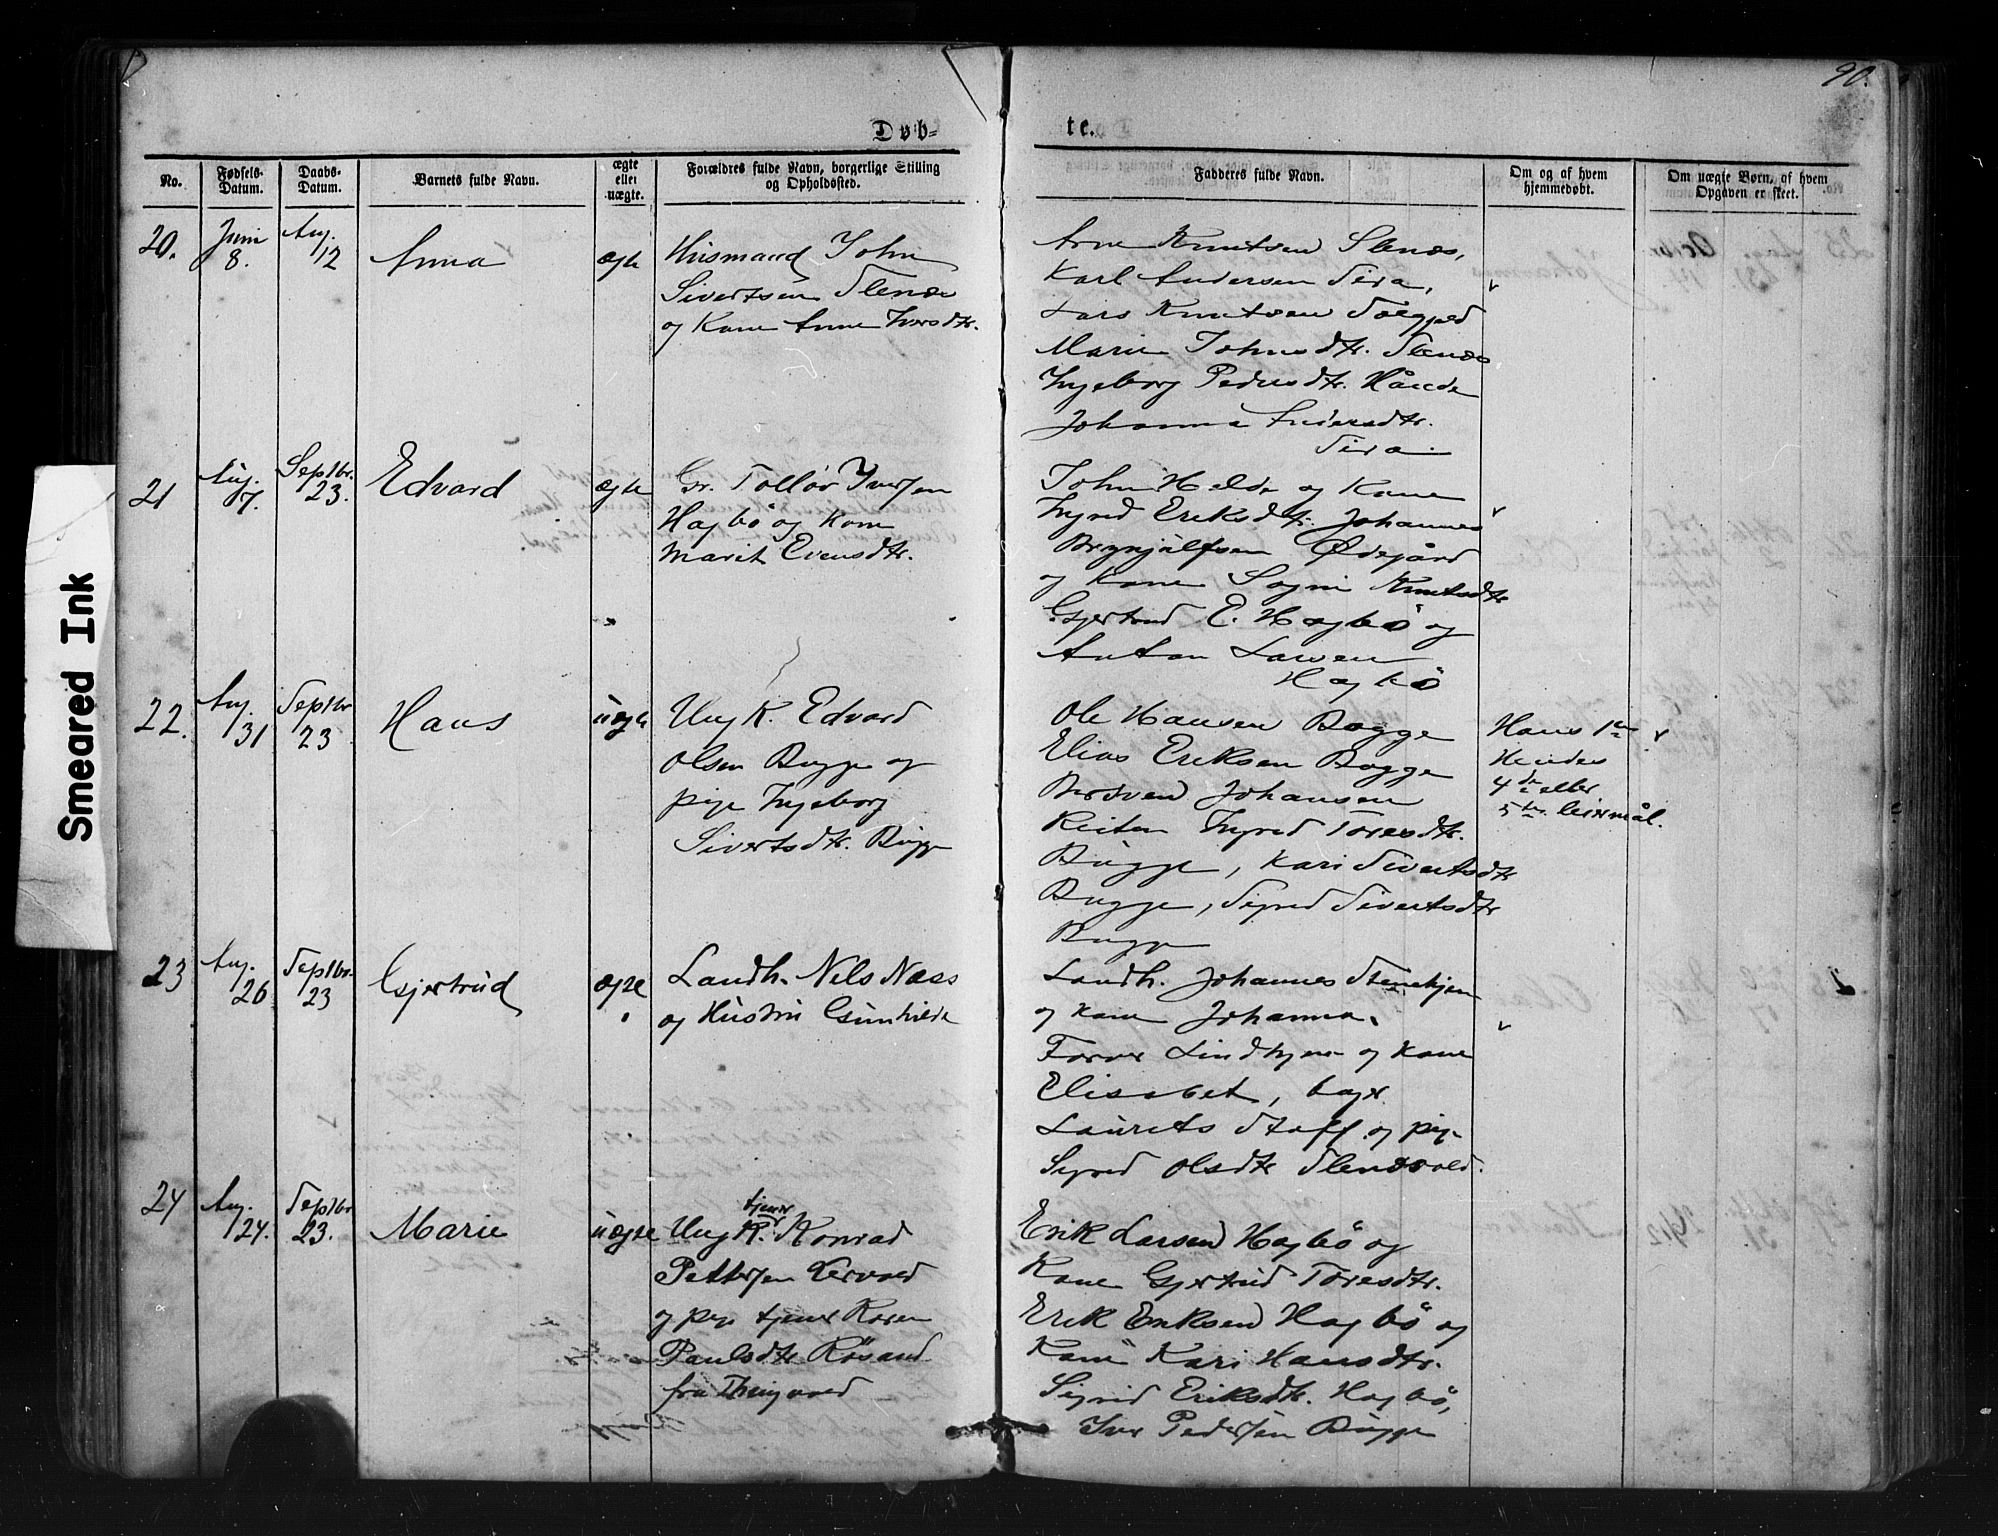 90.
Døb-
te.
No.
Fødsels-
Datum.
Daabs-
Datum.
Barnets fulde Navn.
ægte
eller
uægte.
Forældres fulde Navn, borgerlige Stilling
og Opholdssted.
Fadderes fulde Navn.
Om og af hvem
hjemmedøbt.
Om uægte Børn, af hvem
Opgaven er skeet.
20.
Juni
8.
Aug.
12
Anna
ægte
Husmand John
Sivertsen Slenæs
og Kone Anne Iversdtr.
Arne Knutsen Slenæs,
Karl Andersen Sira,
Lars Knutsen
Marie Johnsdtr. Slenæs
Ingeborg Pedersdtr.
Johanna Andersdtr.
Sira.
21
Aug.
7.
Septbr.
23.
Edvard
ægte
Gr. Tollöv Iversen
Hagbö og Kone
Marit Evensdtr.
John Helde og Kone
Ingrid Eriksdtr. Johannes
Brynjülfsen Ødegård
og Kone Sogni Knutsdtr
Gjertrud E. Hagbö og
Anton Larsen
Hagbö
22.
Aug.
31
Septbr
23
Hans
uægte
Ung K. Edvard
Olsen Bugge og
pige Ingeborg
Sivertsdtr. Bugge
Ole Hansen Bogge
Elias Eriksen Bogge
Johansen
Reiten Ingrid Toresdtr.
Bugge, Kari Sivertsdtr
Bugge, Sigrid Sivertsdtr
Bugge
Hans 1te
Hendes
4de eller
5te leiermål.
23
Aug.
26
Septbr.
23
Gjertrud
ægte
Landh. Nils Næss
og Hustru Gunhilde
Landh. Johannes Stenehjem
og Kone Johanna.
Farver Lindhjem og Kone
Elisabet,
Laurits Staff og pige
Sigrid Olsdtr Slenæsvold.
24
Aug.
24.
Septbr
23.
Marie
uægte
tjener
Ung K. Konrad
Pettersen Lervold
og pige tjener Karen
Paulsdtr Røsand
fra Thingvold
Erik Larsen Hagbö og
Kone Gjertrud Toresdtr.
Erik Eriksen Hagbö og
Kone Kari Hansdtr.
Sigrid Eriksdtr. Hagbö,
Iver Pedersen Bugge
Smeared Ink